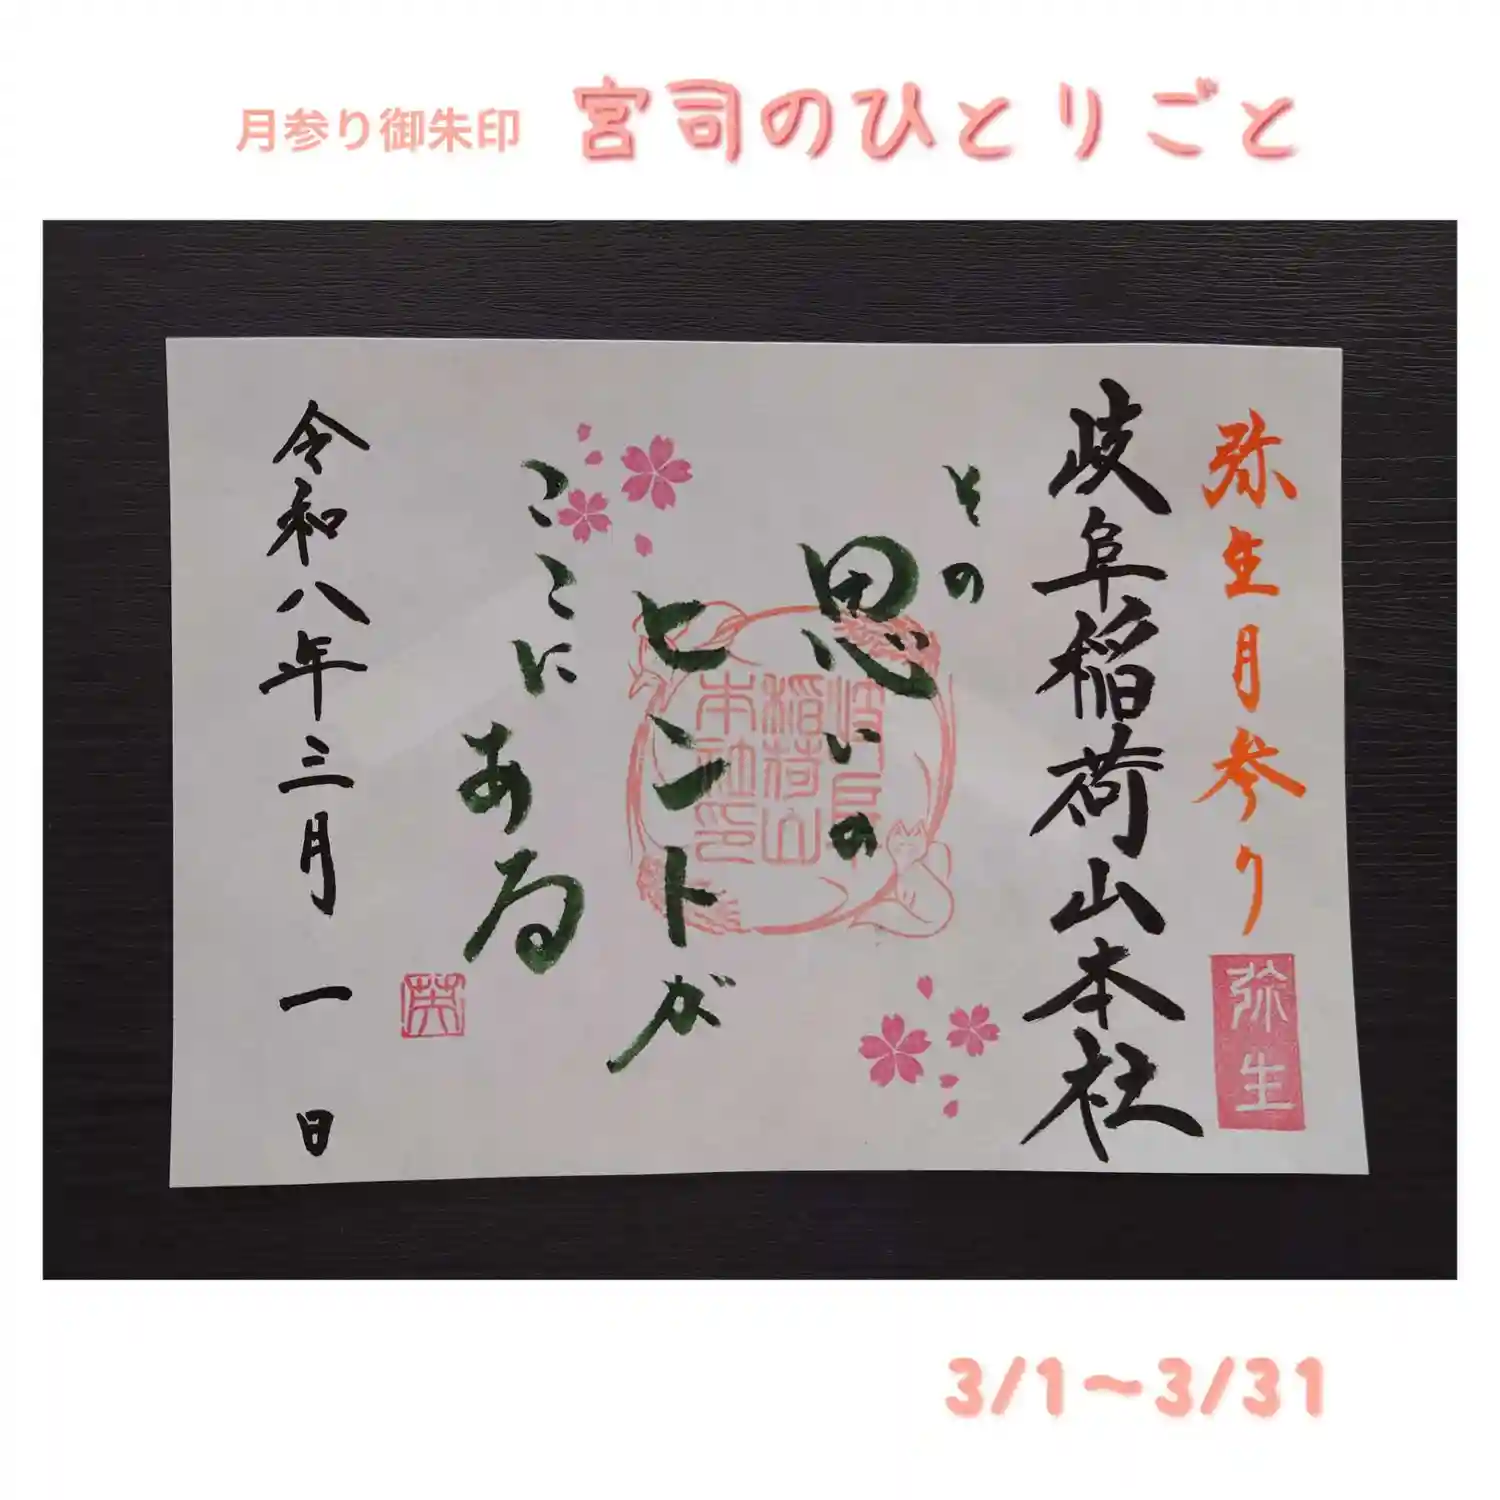 月参り御朱印 宮司のひとりごと
弥生月参り
弥生
岐阜稲荷山本社
その
思いの
ヒントが
ここに
ある
岐阜
稲荷山
本社印
令和八年三月一日
3/1〜3/31